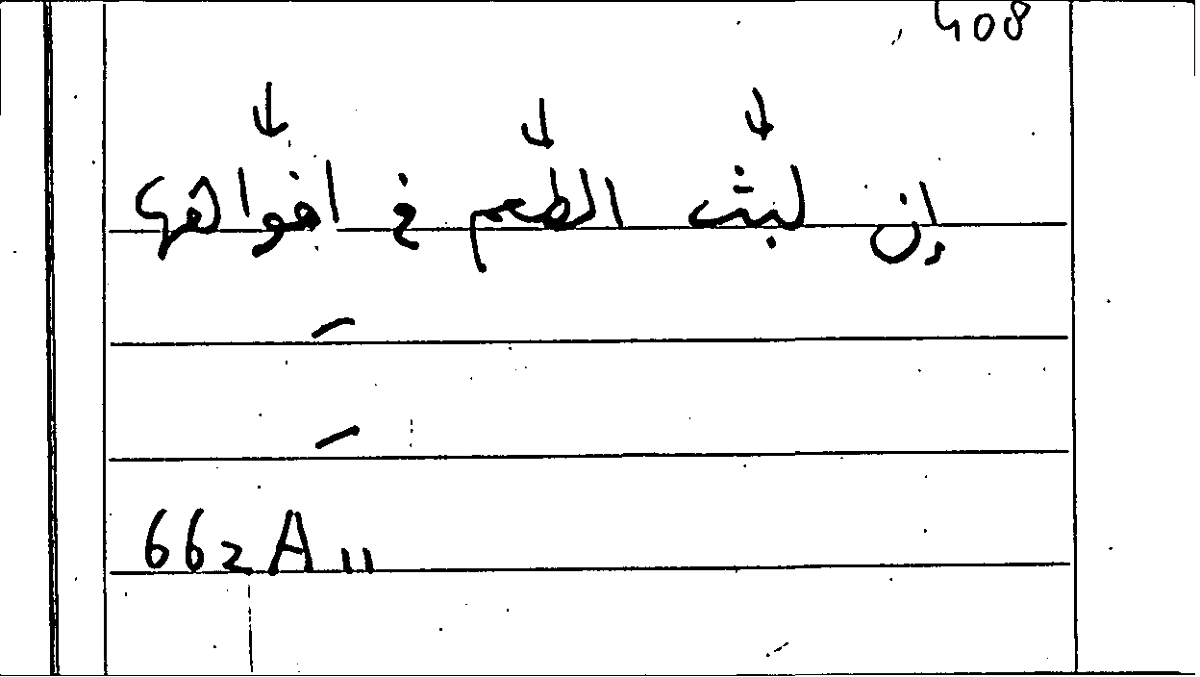 408
إن لبث الطعم في افواهها
662 A 11